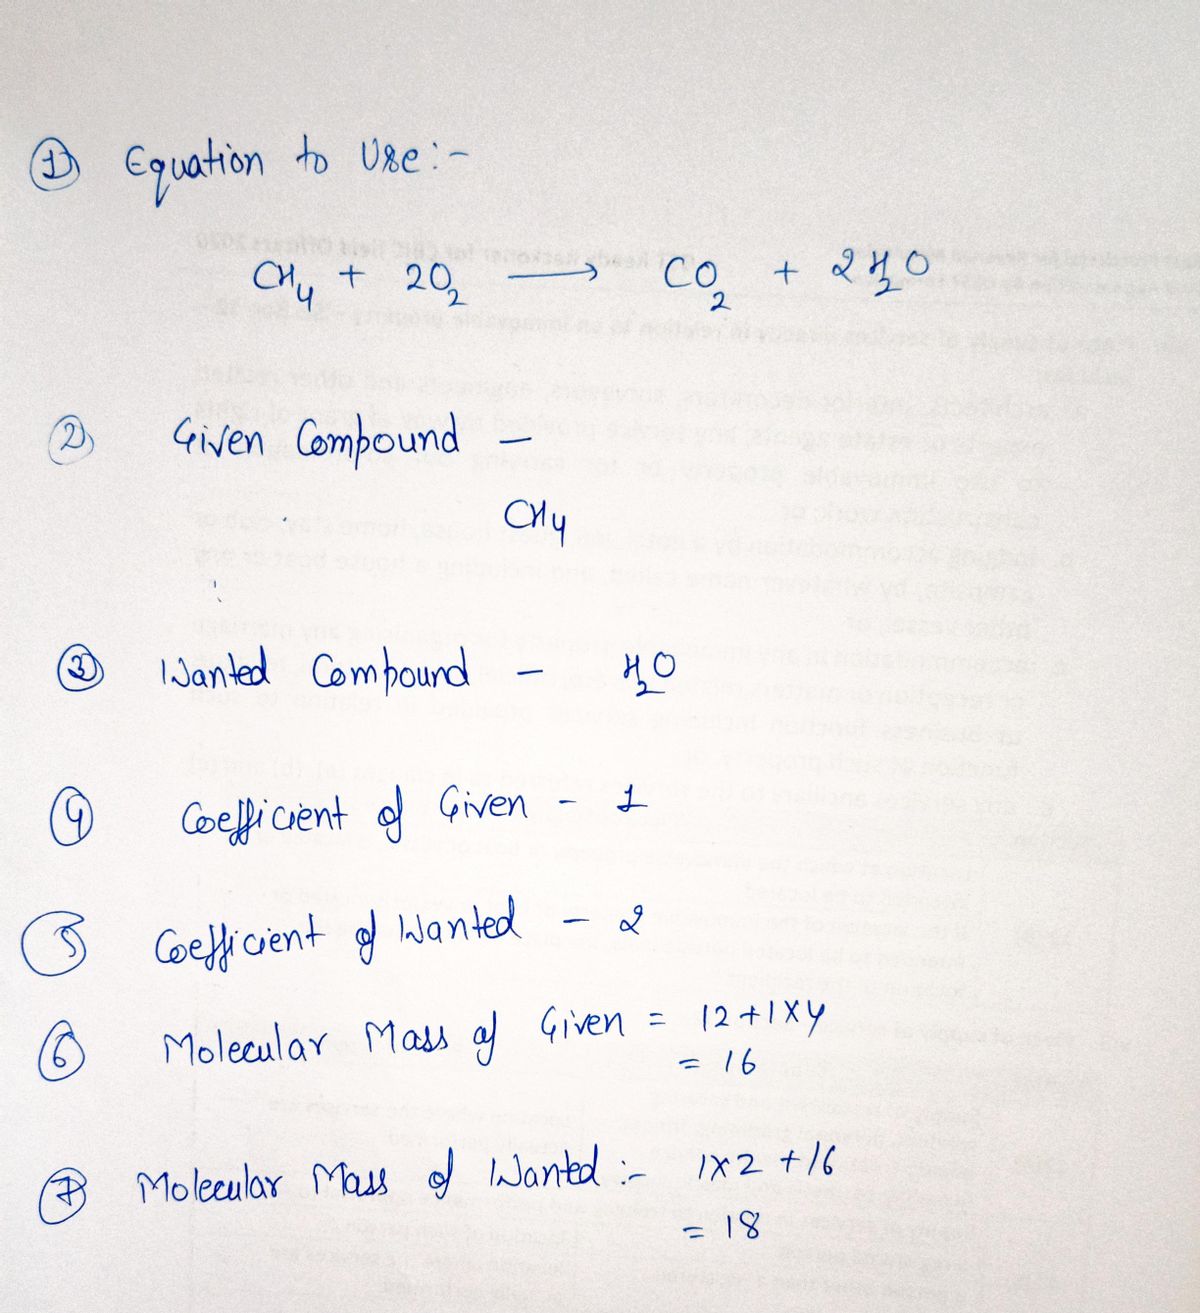 ① Equation to Use:-
CH₄ + 2O₂ → CO₂ + 2H₂O
② Given Compound -
CH₄
③ Wanted Compound - H₂O
④ Coefficient of Given - 1
⑤ Coefficient of Wanted - 2
⑥ Molecular Mass of Given = 12+1×4
= 16
⑦ Molecular Mass of Wanted :- 1×2 +16
= 18